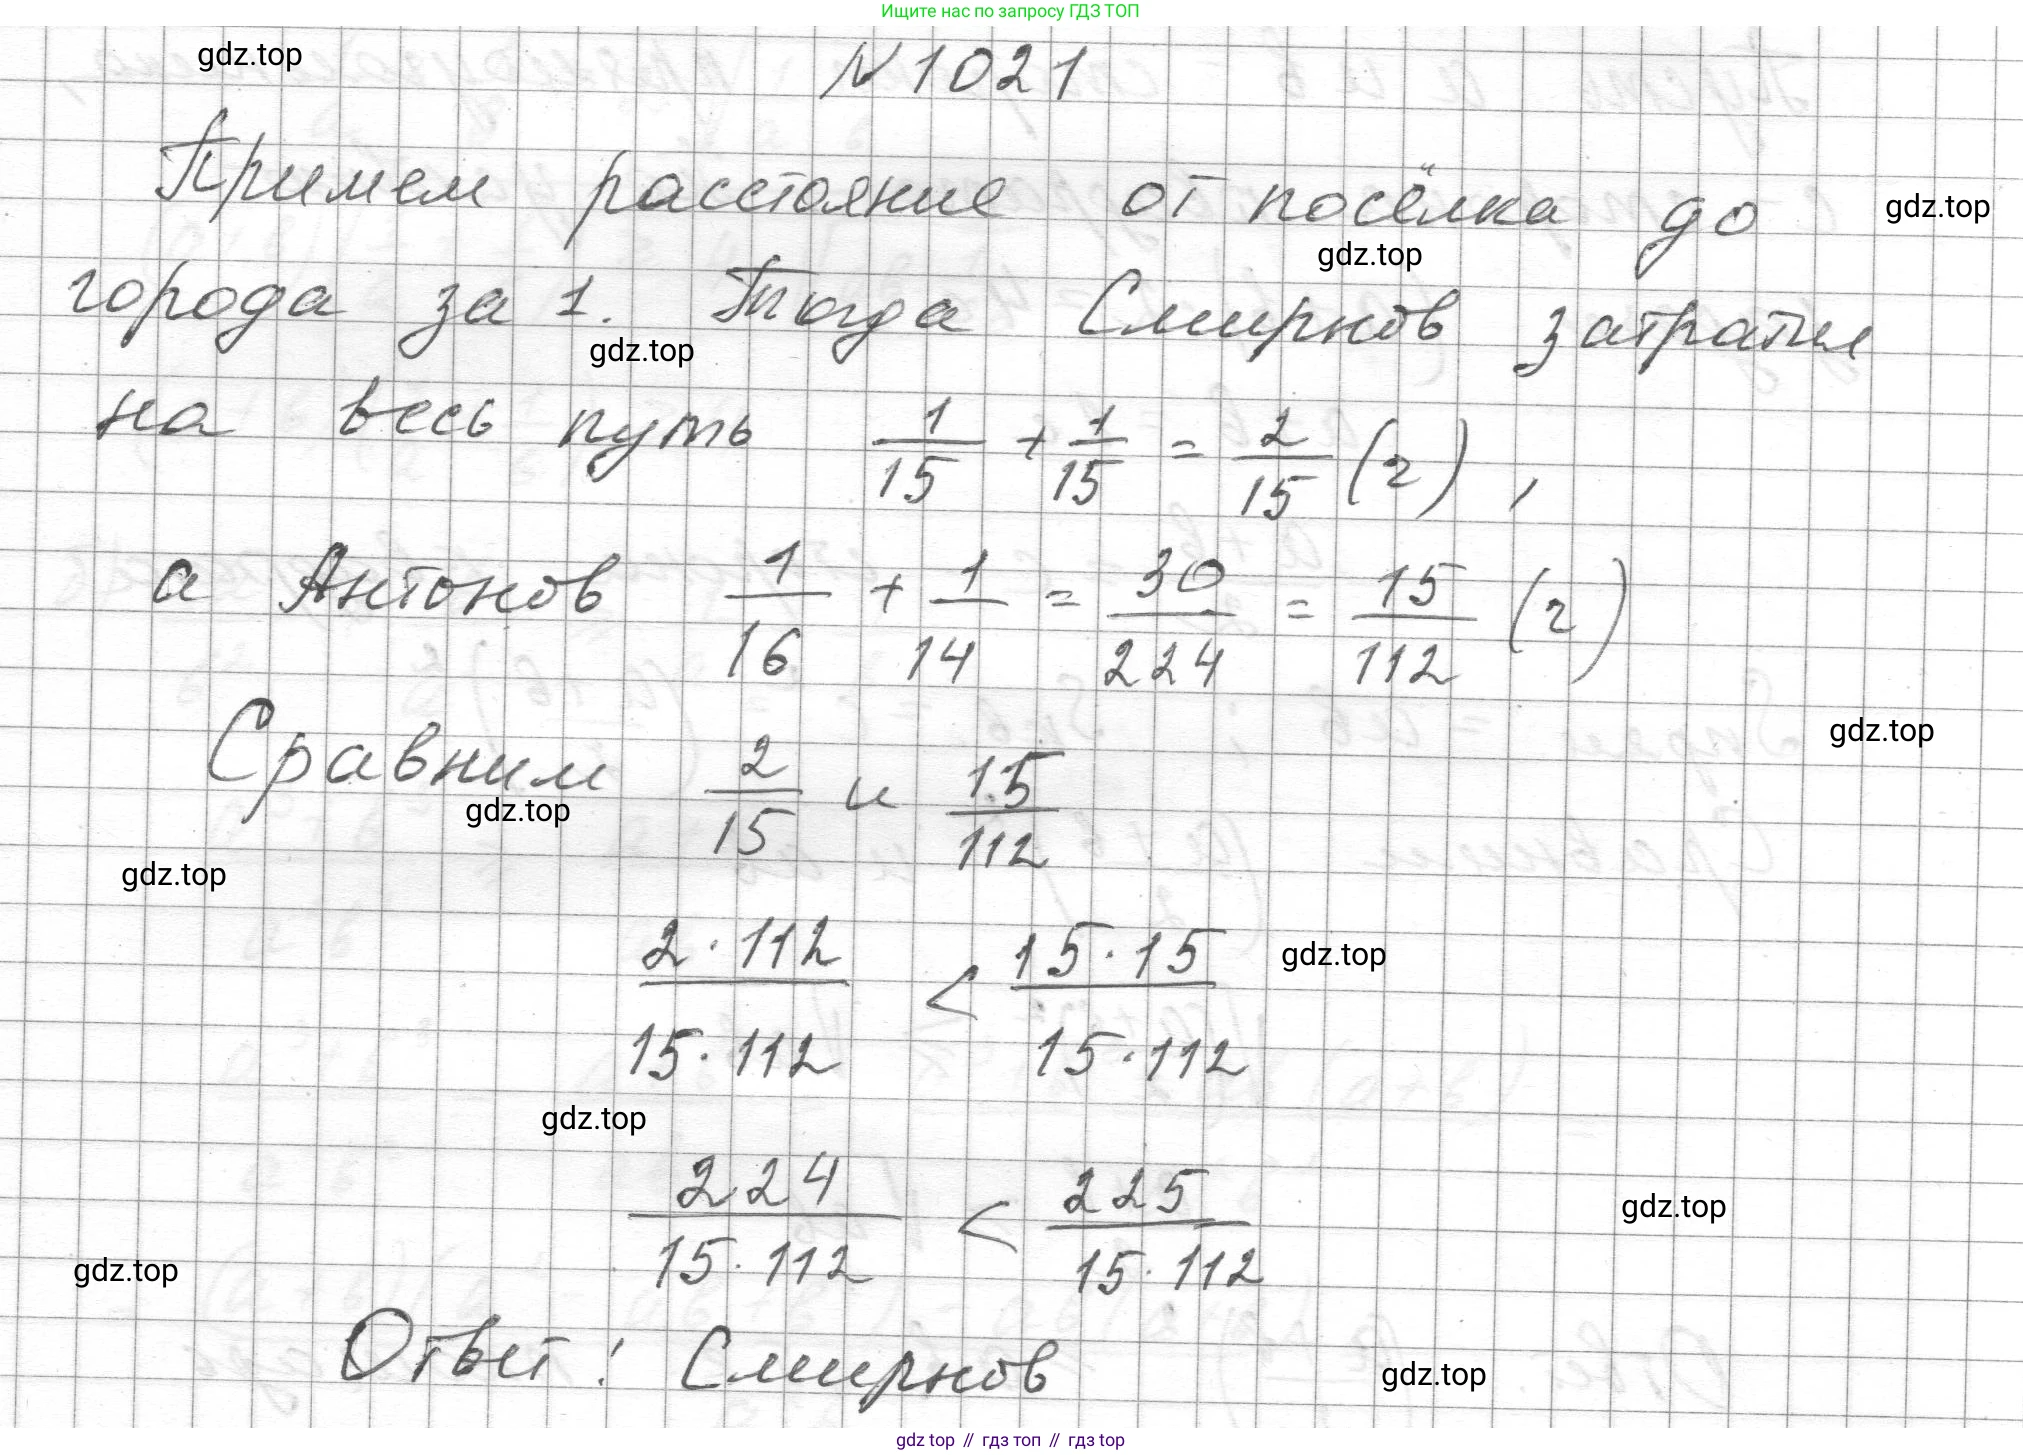 Ищите нас по запросу ГДЗ ТОП
gdz.top
N 1021
Примем расстояние от посёлка до
gdz.top
gdz.top
города за 1. Тогда Смирнов затратил
gdz.top
на весь путь 1/15 + 1/15 = 2/15 (ч) ,
а Антонов 1/16 + 1/14 = 30/224 = 15/112 (ч)
gdz.top
Сравним 2/15 и 15/112
gdz.top
gdz.top
2·112/15·112 < 15·15/15·112
gdz.top
gdz.top
224/15·112 < 225/15·112
gdz.top
gdz.top
Ответ: Смирнов
gdz.top
gdz top // гдз топ // гдз top